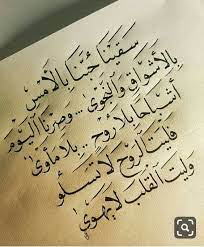 سَقَيْنَا حُبَّنَا بِالأمْسِ
بِالأشْوَاقِ وَالنَّجْوَى ... وَصِرْنَا اليَوْمَ
أَشْبَاحًا بِلَا رُوحٍ ... بِلَا مَأْوَى
فَلَيْتَ الرُّوحَ لَا تَسْلُو
وَلَيْتَ القَلْبَ لَا يَهْوَى